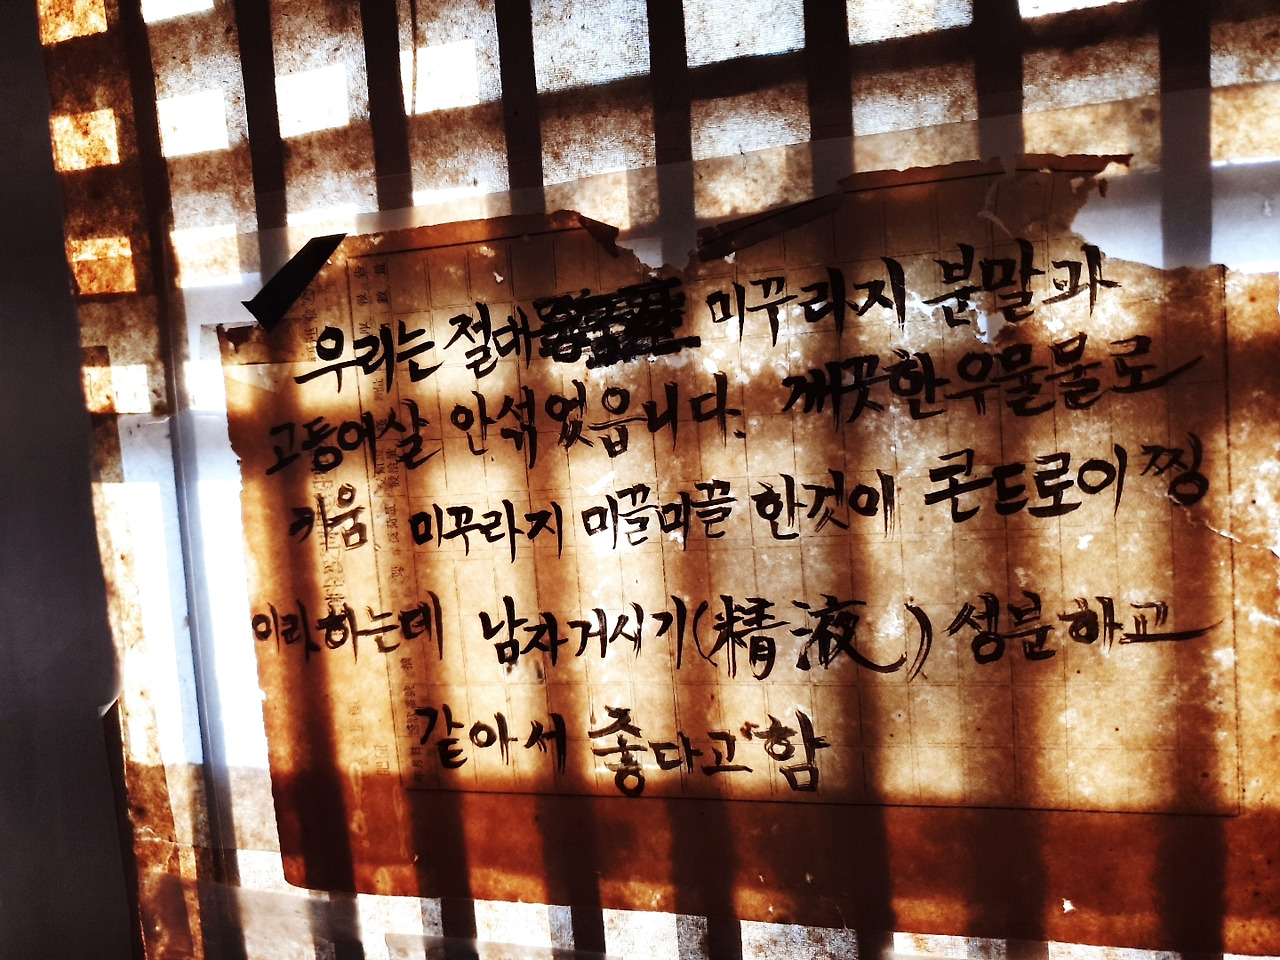 우리는 절대 미꾸라지 분말과
고등어살 안섞었읍니다. 깨끗한 우물물로
키움 미꾸라지 미끌미끌 한것이 콘드로이찡
이라하는데 남자거시기(精液) 성분하고
같아서 좋다고 함